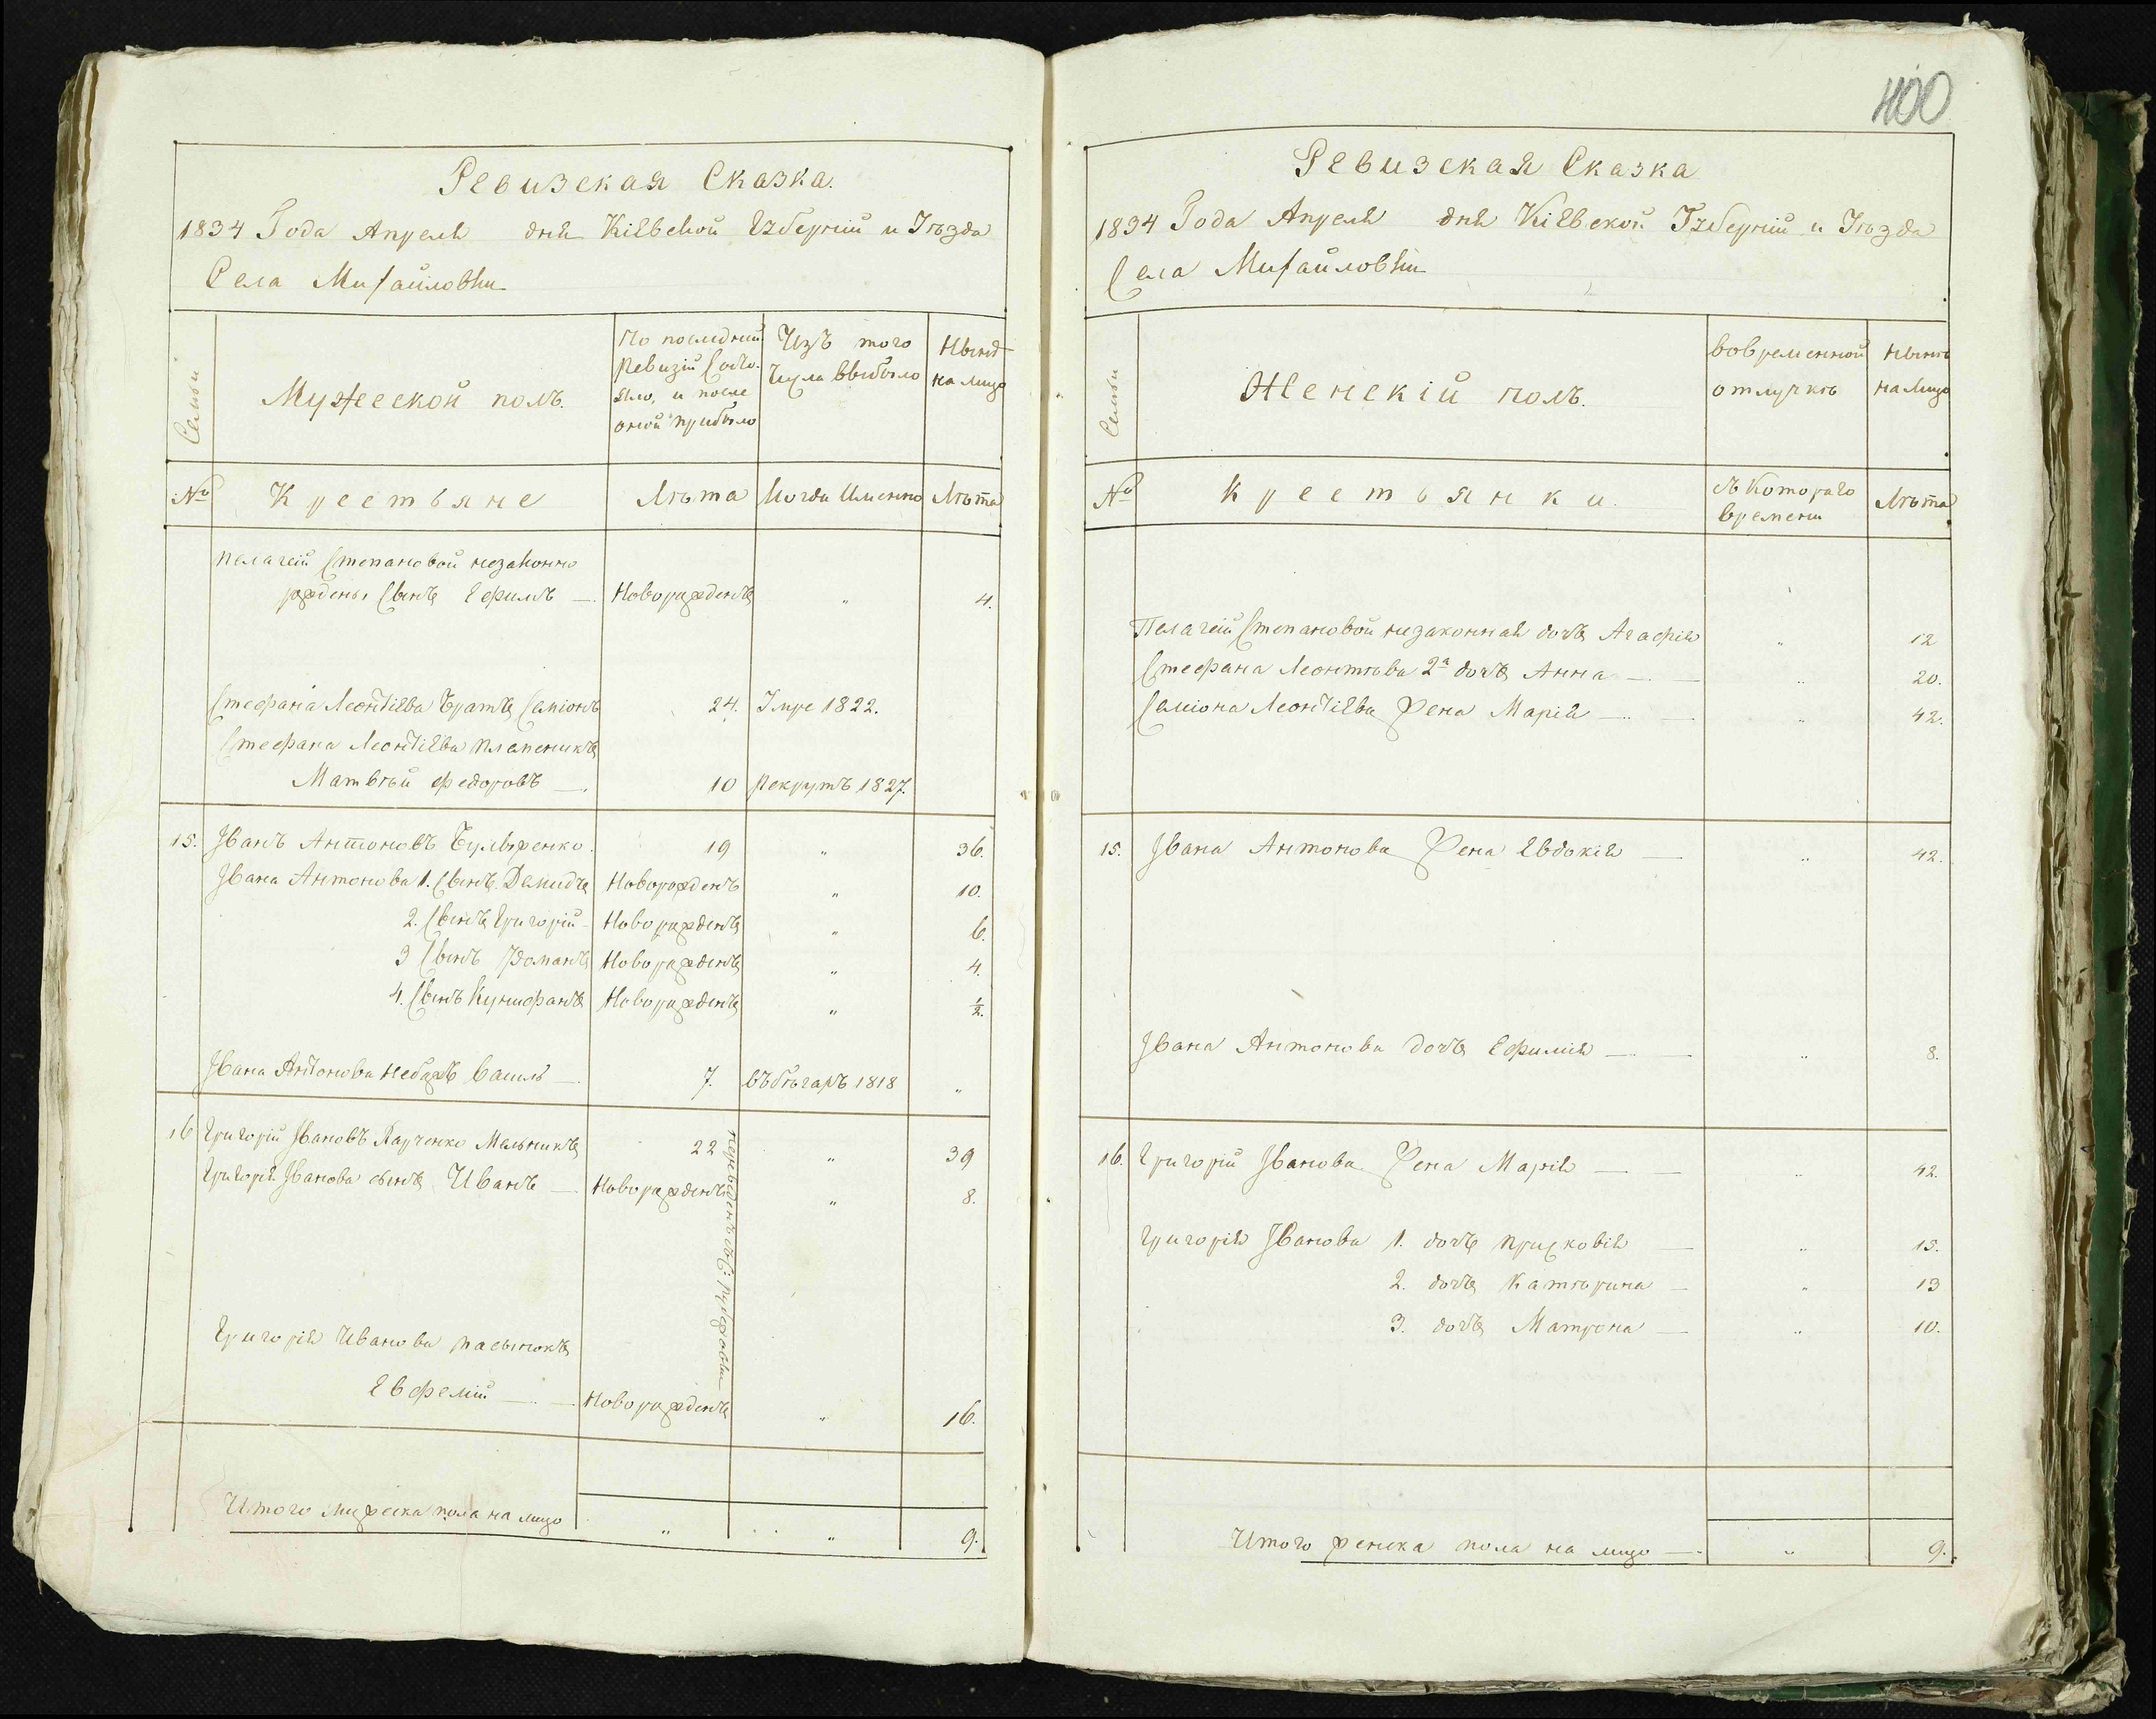 400
Ревизская Сказка.
1834 Года Апреля дня Кіевской Губерніи и Уѣзда
Села Михайловки
Семьи
Мужеской полъ.
По послѣдней
ревизіи Состо-
яло, и после
оной прибыло
Изъ того
Числа выбыло
Нынѣ
на лицо
№
Крестьяне
Лѣта
Когда Именно
Лѣта
Пелагеи Степановой незаконно
рожденъ Сынъ Ефимъ — Новорожденъ " 4.
Стефана Леонтіева Братъ Семіонъ 24. Умре 1822.
Стефана Леонтіева племеникъ
Матвѣй Федоровъ — 10 рекрутъ 1827.
15. Іванъ Антоновъ 19 " 36.
Івана Антонова 1. Сынъ Демидъ Новорожденъ " 10.
2. Сынъ Григорій Новорожденъ " 6.
3 Сынъ Романъ Новорожденъ " 4.
4. Сынъ Новорожденъ " ½.
Івана Антонова небожъ Василь — 7. въ бѣгахъ 1818 "
16 Григорій Івановъ Мельникъ 22 " 39
Григорія Іванова сынъ Иванъ — Новорожденъ " 8.
Григорія Иванова пасынокъ
Евфемій — Новорожденъ " 16.
Итого мужеска пола на лицо " " 9.
Ревизская Сказка
1834 Года Апреля дня Кіевской Губерніи и Уѣзда
Села Михайловки
Семьи
Женскій полъ.
вовременной
отлучкѣ
нынѣ
на Лицо
№
Крестьянки.
съ Котораго
времени
Лѣта
Пелагеи Степановой незаконная дочь Агафія " 12
Стефана Леонтѣва 2я дочь Анна — " 20.
Семіона Леонтіева Жена Марія — " 42.
15. Івана Антонова Жена Евдокія — " 42.
Івана Антонова дочь Ефимія — " 8.
16. Григорій Іванова Жена Марія — " 42.
Григорія Іванова 1. дочь Присковія — " 15.
2. дочь Катѣрина — " 13
3. дочь Матрона — " 10.
Итого женска пола на лицо — " 9.